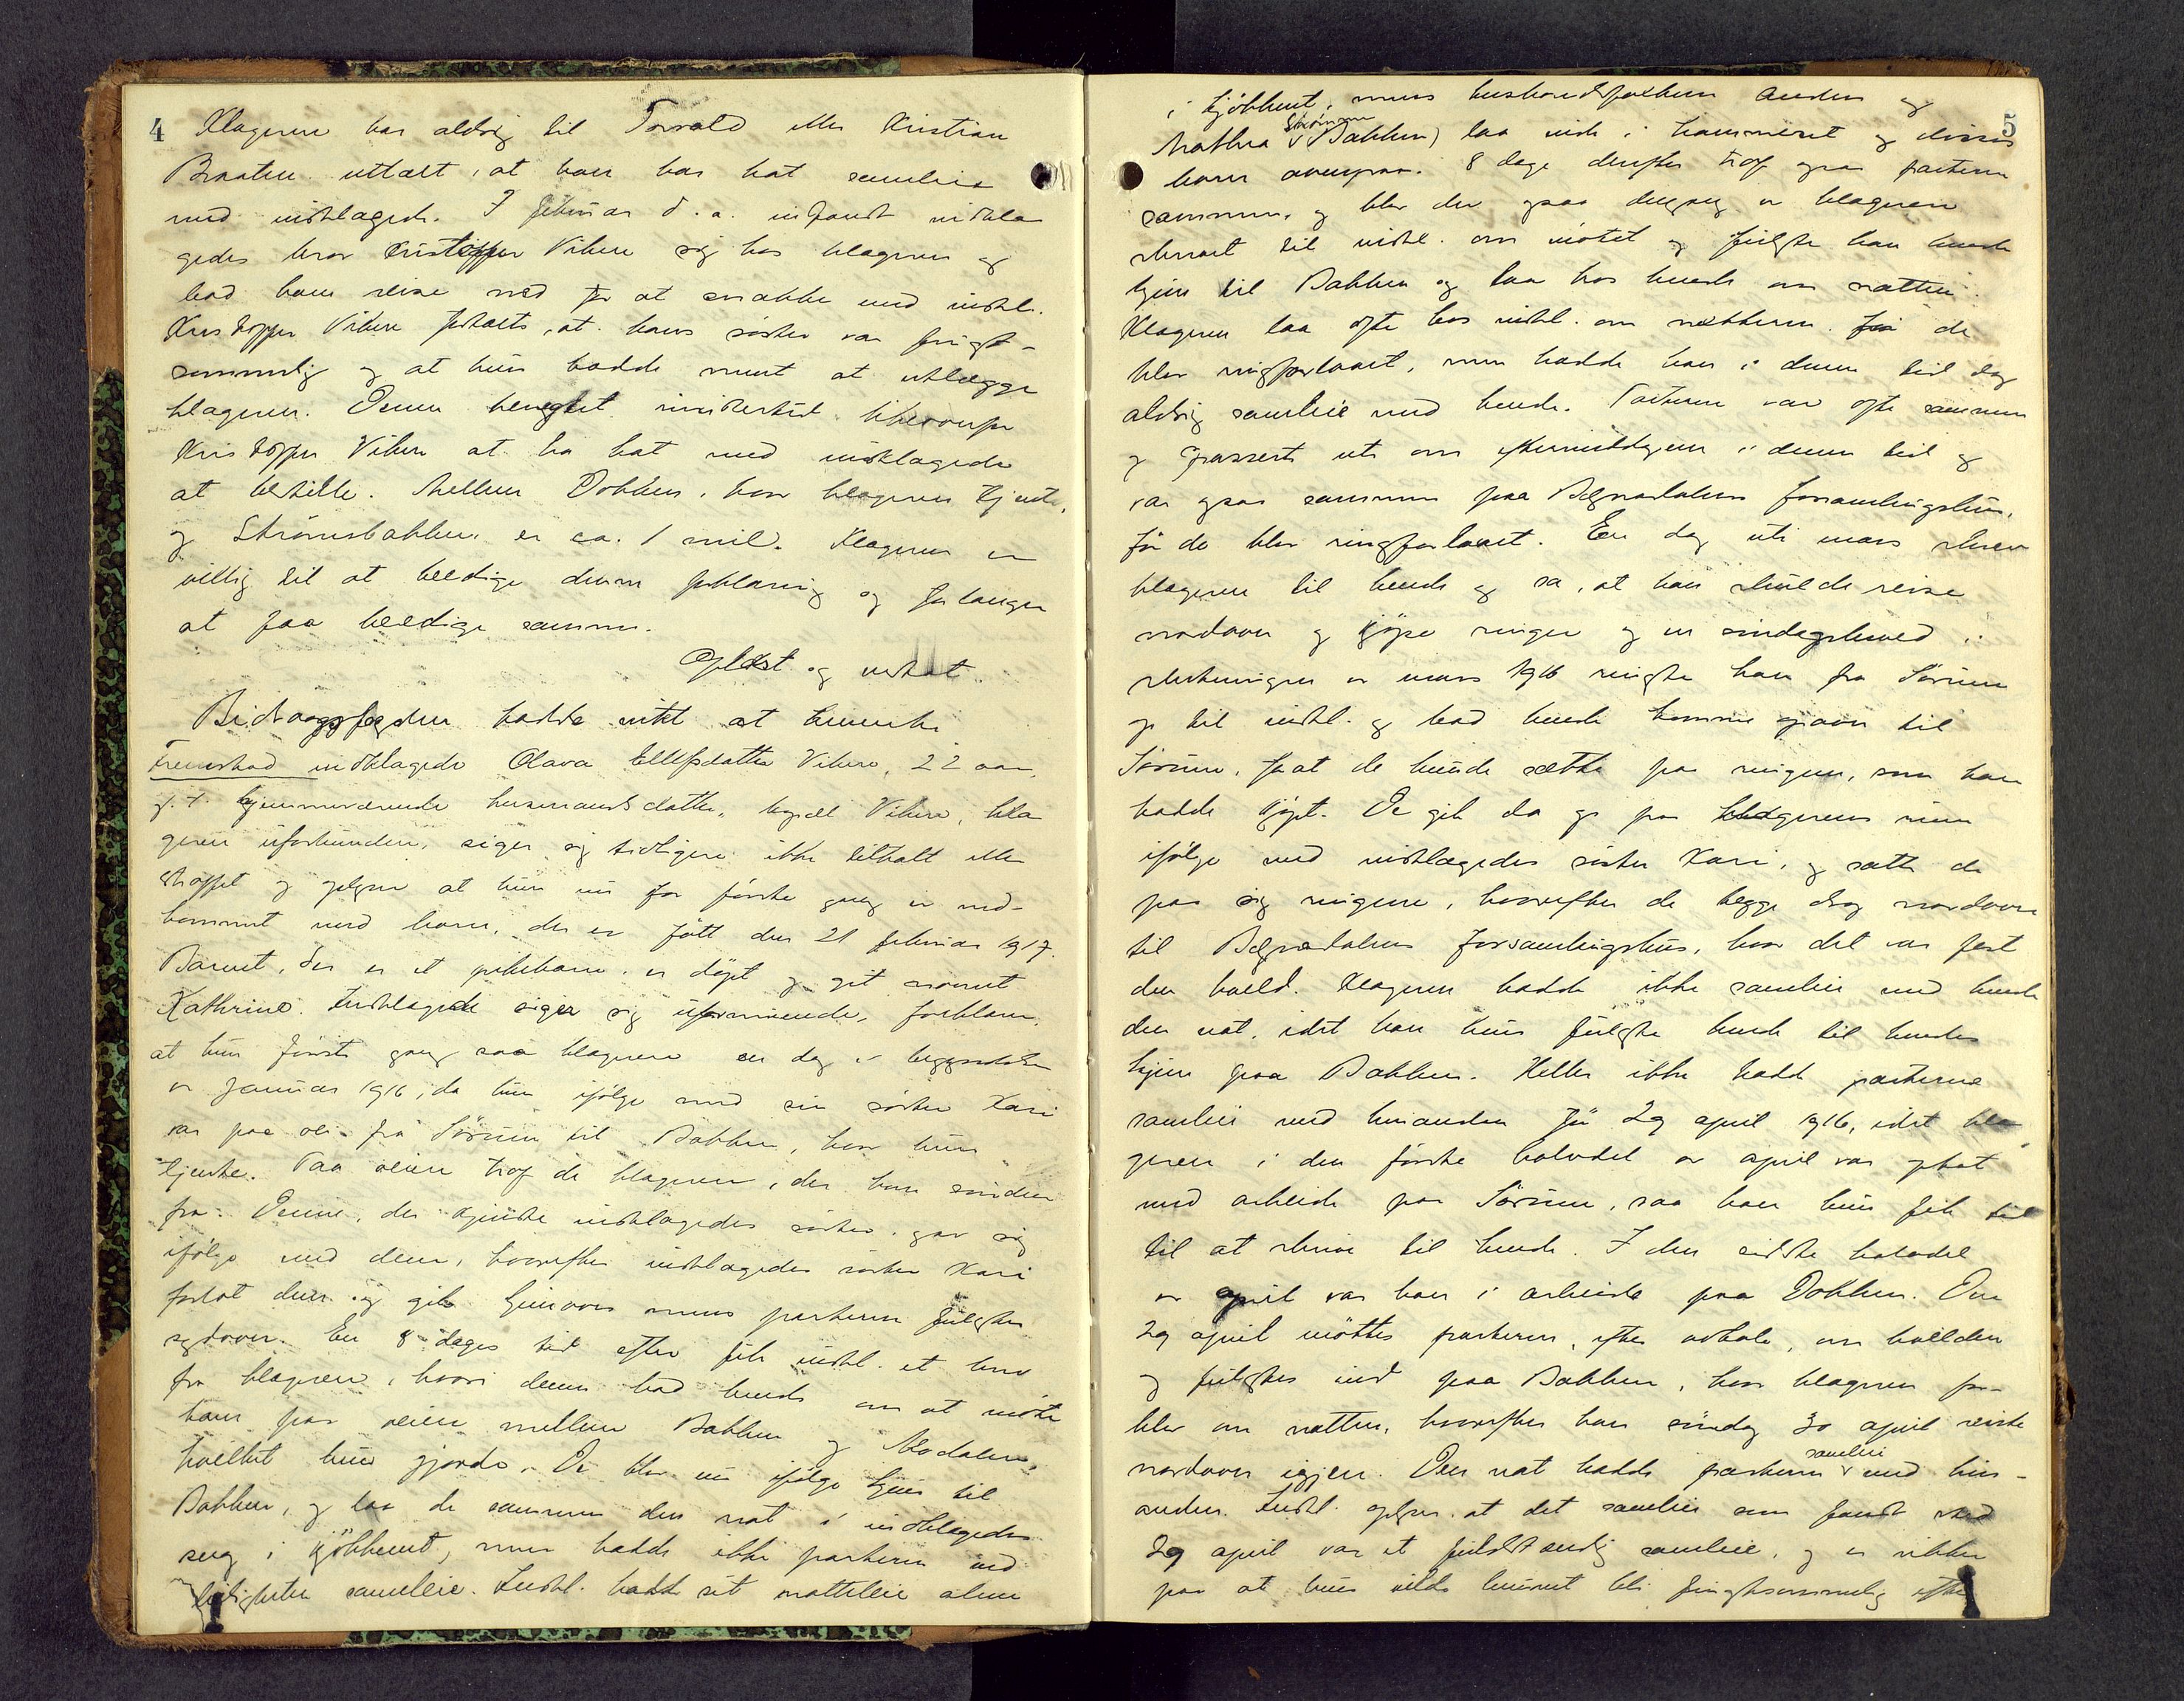 4
Klageren har aldrig til Torvald eller Kristian
Braaten uttalt, at han har hat samleie
med indklagede. I februar d. a. indfandt indkla
gedes bror Kristoffer Vikere sig hos klageren og
bad ham reise ned for at snakke med indkl.
Kristoffer Vikere fortalte, at hans søster var frugt-
sommelig og at hun hadde ment at utlægge
klageren. Denne benegtet imidlertid likeoverfor
Kristoffer Vikere at ha hat med indklagede
at bestille. Mellem Dokken, hvor klageren tjente,
og Strømsbakken er ca. 1 mil. Klageren er
villig til at beedige denne forklaring og forlanger
at faa beedige samme.
Oplæst og vedtat.
Bidragsfogden hadde intet at bemerke
Fremstod indklagede Olava Ellefsdatter Vikere, 22 aar,
f. t. hjemmeværende husmandsdatter, bygdel Vikere, kla
geren uforbunden, siger sig tidligere ikke tiltalt eller
straffet og opgir at hun nu for første gang er ned-
kommet med barn, der er født den 21 februar 1917.
Barnet, der er et pikebarn, er døpt og git navnet
Kathrine. Indklagede siger sig uformuende, forklarer,
at hun første gang saa klageren en dag i begyndelsen
av januar 1916, da hun ifølge med sin søster Kari
var paa vei fra Sørum til Bakken, hvor hun
tjente. Paa veien traf de klageren, der kom søndenfra
fra. Denne, der kjendte indklagedes søster, gav sig
ifølge med dem, hvorefter indklagedes søster Kari
forlot dem og gik hjemover mens parterne fulgtes
sydover. En 8 dages tid efter fik indkl. et brev
fra klageren, hvori denne bad hende om at møte
ham paa veien mellem Bakken og Modalen,
hvilket hun gjorde. De blev nu ifølge hjem til
Bakken, og laa de sammen den nat i indklagedes
seng i kjøkkenet, men hadde ikke parterne ved
leiligheten samleie. Indkl. hadde sit natteleie alene
5
i kjøkkenet, mens husbondsfolkene Anders og
Mathea Strømmen (Bakken) laa inde i kammerset og disses
barn ovenpaa. 8 dage derefter traf ogsaa parterne
sammen, og blev der ogsaa dengang av klageren
skrevet til indkl. om møtet og fulgte han hende
hjem til Bakken og laa hos hende om natten.
Klageren laa ofte hos indkl. om nætterne før de
blev ringforlovet, men hadde han i denne tid dog
aldrig samleie med hende. Parterne var ofte sammen
og spaserte ute om eftermiddagene i denne tid og
var ogsaa sammen paa Begnadalens forsamlingshus,
før de blev ringforlovet. En dag uti mars skrev
klageren til hende og sa, at han skulde reise
nordover og kjøpe ringer og en søndagskveld i
slutningen av mars 1916 ringte han fra Sørum
op til indkl. og bad hende komme opover til
Sørum, for at de kunde sætte paa ringene, som han
hadde kjøpt. De gik da op paa klagerens rum
ifølge med indklagedes søster Kari, og satte de
paa sig ringene, hvorefter de begge drog nordover
til Begnadalens forsamlingshus, hvor det var fest
den kveld. Klageren hadde ikke samleie med hende
den nat, idet han kun fulgte hende til hendes
hjem paa Bakken. Heller ikke hadde parterne
samleie med hinanden før 29 april 1916, idet kla
geren i den første halvdel av april var optat
med arbeide paa Sørum, saa han kun fik tid
til at skrive til hende. I den sidste halvdel
av april var han i arbeide paa Dokken. Den
29 april møttes parterne, efter avtale, om kvelden
og fulgtes ind paa Bakken, hvor klageren for-
blev om natten, hvorefter han søndag 30 april reiste
nordover igjen. Den nat hadde parterne samleie med hin-
anden. Indkl. opgir at det samleie som fandt sted
29 april var et fuldstændig samleie, og er sikker
paa at hun vilde kunnet bli frugtsommelig efter